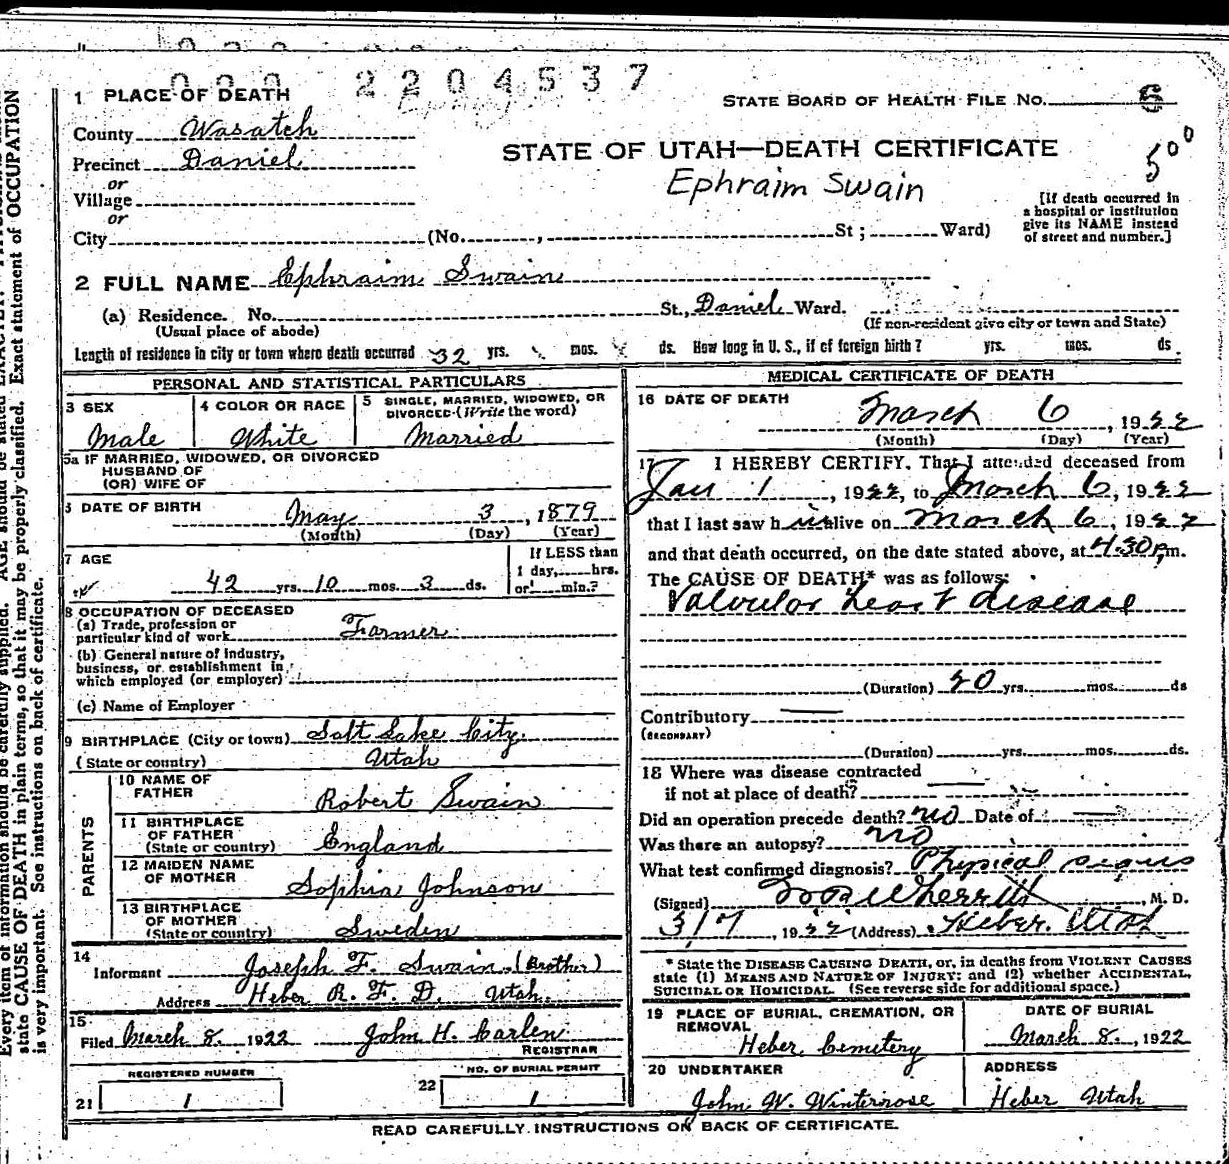 2204537
1 PLACE OF DEATH
STATE BOARD OF HEALTH FILE NO.
County Wasatch
Precinct Daniel
STATE OF UTAH—DEATH CERTIFICATE
5 00
or
Village
Ephraim Swain
or
[If death occurred in
a hospital or institution
give its NAME instead
of street and number.]
City (No. , St ; Ward)
2 FULL NAME Ephraim Swain
(a) Residence. No. St., Daniel Ward.
(Usual place of abode)
(If non-resident give city or town and State)
Length of residence in city or town where death occurred 32 yrs. mos. ds. How long in U. S., if of foreign birth? yrs. mos. ds.
PERSONAL AND STATISTICAL PARTICULARS
3 SEX
Male
4 COLOR OR RACE
White
5 SINGLE, MARRIED, WIDOWED, OR
DIVORCED (Write the word)
Married
5a IF MARRIED, WIDOWED, OR DIVORCED
HUSBAND OF
(OR) WIFE OF
DATE OF BIRTH May 3, 1879
(Month) (Day) (Year)
7 AGE
42 yrs. 10 mos. 3 ds.
If LESS than
1 day, hrs.
or min.?
8 OCCUPATION OF DECEASED
(a) Trade, profession or
particular kind of work Farmer
(b) General nature of industry,
business, or establishment in
which employed (or employer)
(c) Name of Employer
9 BIRTHPLACE (City or town) Salt Lake City.
(State or country) Utah
PARENTS
10 NAME OF
FATHER Robert Swain
11 BIRTHPLACE
OF FATHER
(State or country) England
12 MAIDEN NAME
OF MOTHER Sophia Johnson
13 BIRTHPLACE
OF MOTHER
(State or country) Sweden
14
Informant Joseph F. Swain (Brother)
Address Heber R. F. D. Utah.
15
Filed March 8, 1922 John H. Carlen
REGISTRAR
REGISTERED NUMBER
21 1
NO. OF BURIAL PERMIT
22 1
MEDICAL CERTIFICATE OF DEATH
16 DATE OF DEATH
March 6, 1922
(Month) (Day) (Year)
17 I HEREBY CERTIFY, That I attended deceased from
Jan 1, 1922, to March 6, 1922
that I last saw h im alive on March 6, 1922
and that death occurred, on the date stated above, at 4:30 p.m.
The CAUSE OF DEATH* was as follows:
Valvular heart disease
(Duration) 20 yrs. mos. ds
Contributory
(SECONDARY)
(Duration) yrs. mos. ds.
18 Where was disease contracted
if not at place of death?
Did an operation precede death? no Date of
Was there an autopsy? no
What test confirmed diagnosis? Physical signs
(Signed) , M. D.
3/7, 1922 (Address) Heber. Utah
* State the DISEASE CAUSING DEATH, or, in deaths from VIOLENT CAUSES
state (1) MEANS AND NATURE OF INJURY; and (2) whether ACCIDENTAL,
SUICIDAL OR HOMICIDAL. (See reverse side for additional space.)
19 PLACE OF BURIAL, CREMATION, OR
REMOVAL
Heber Cemetery
DATE OF BURIAL
March 8, 1922
20 UNDERTAKER
John W. Winterrose
ADDRESS
Heber Utah
READ CAREFULLY INSTRUCTIONS ON BACK OF CERTIFICATE.
state CAUSE OF DEATH in plain terms, so that it may be properly classified. Exact statement of OCCUPATION
is very important. See instructions on back of certificate.